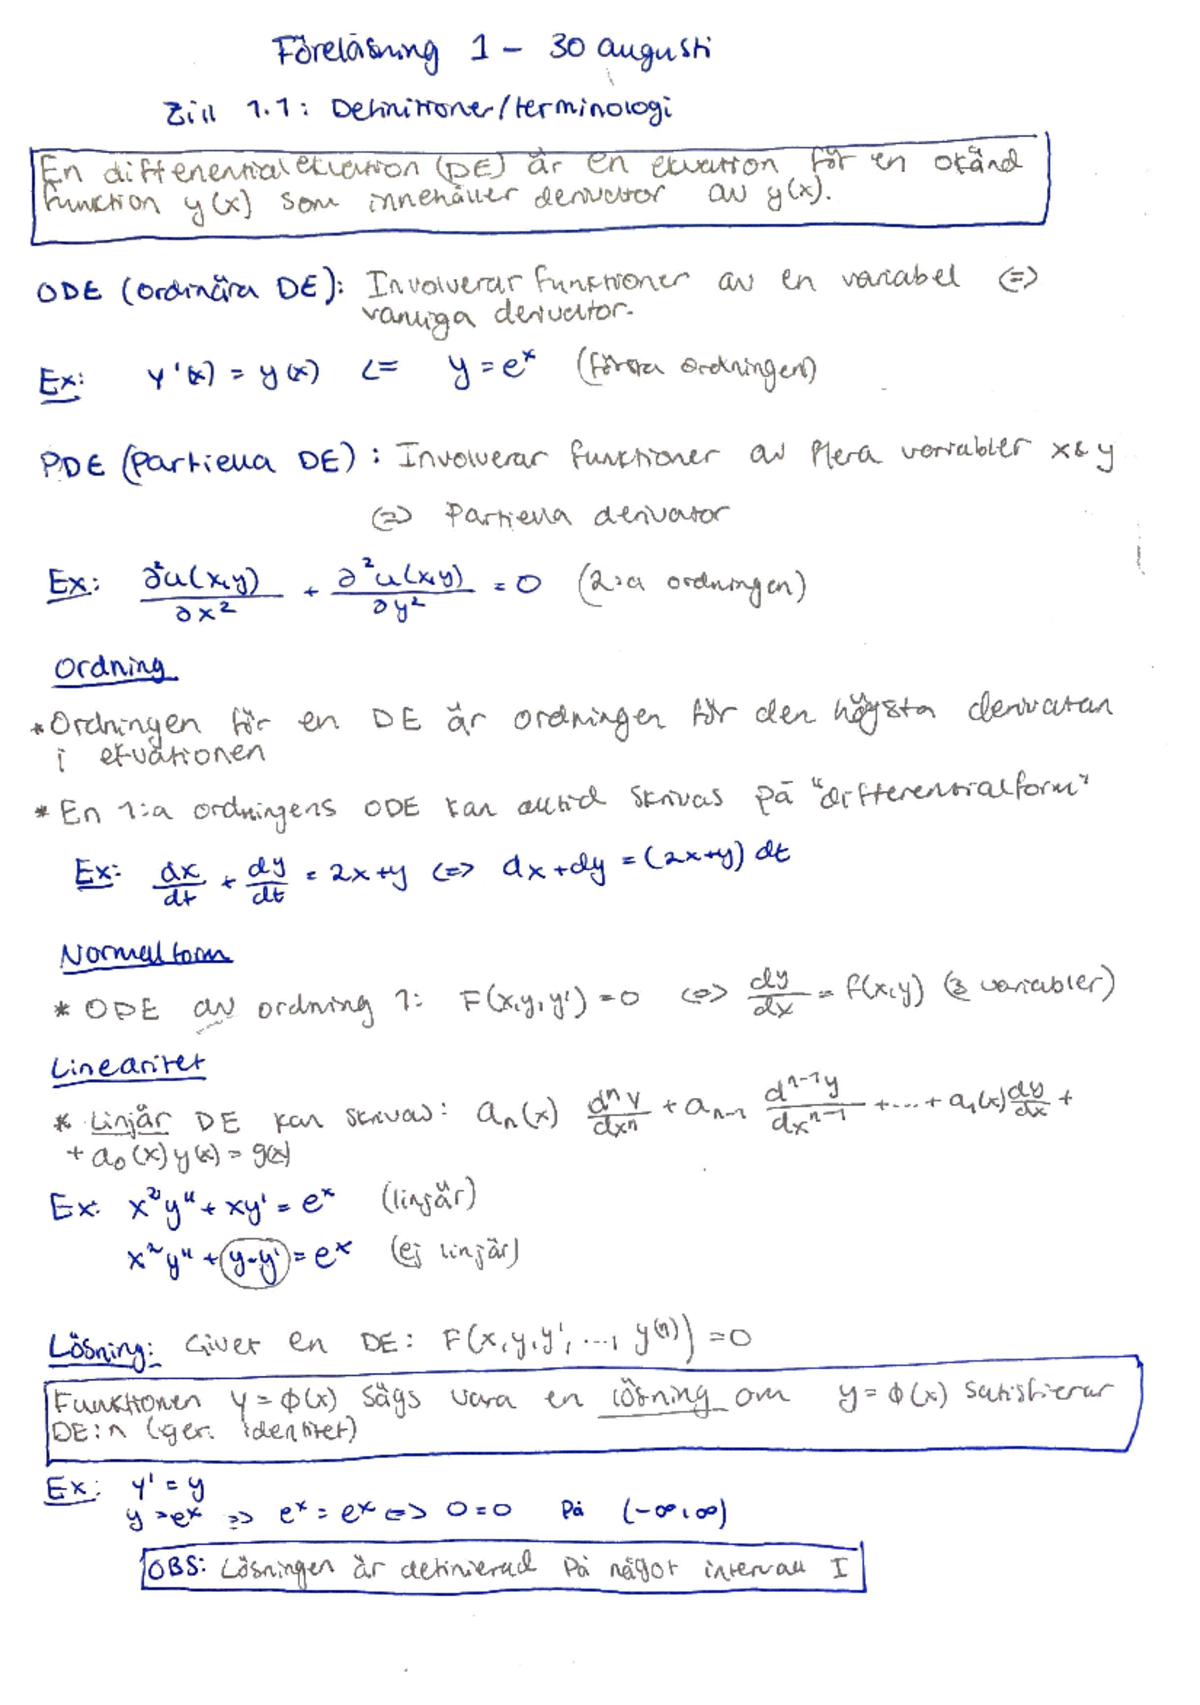 Föreläsning 1 – 30 augusti
Zill 1.1: Definitioner/terminologi
En differentialekvation (DE) är en ekvation för en okänd
funktion y(x) som innehåller derivator av y(x).
ODE (ordinära DE): Involverar funktioner av en variabel <=>
vanliga derivator.
Ex: y'(x) = y(x) <= y = e^x (första ordningen)
PDE (partiella DE): Involverar funktioner av flera variabler x & y
<=> Partiella derivator
Ex: ∂²u(x,y)/∂x² + ∂²u(x,y)/∂y² = 0 (2:a ordningen)
Ordning
* Ordningen för en DE är ordningen för den högsta derivatan
i ekvationen
* En 1:a ordningens ODE kan alltid skrivas på "differentialform"
Ex: dx/dt + dy/dt = 2x+y <=> dx+dy = (2x+y) dt
Normalform
* ODE av ordning 1: F(x,y,y') = 0 <=> dy/dx = f(x,y) (3 variabler)
Linearitet
* Linjär DE kan skrivas: aₙ(x) dⁿy/dxⁿ + aₙ₋₁ dⁿ⁻¹y/dxⁿ⁻¹ + ... + a₁(x) dy/dx +
+ a₀(x) y(x) = g(x)
Ex: x²y'' + xy' = e^x (linjär)
x²y'' + y·y' = e^x (ej linjär)
Lösning: Givet en DE: F(x, y, y', ..., y⁽ⁿ⁾) = 0
Funktionen y = ϕ(x) sägs vara en lösning om y = ϕ(x) satisfierar
DE:n (ger identitet)
Ex: y' = y
y = e^x => e^x = e^x <=> 0 = 0 på (-∞,∞)
OBS: Lösningen är definierad på något intervall I